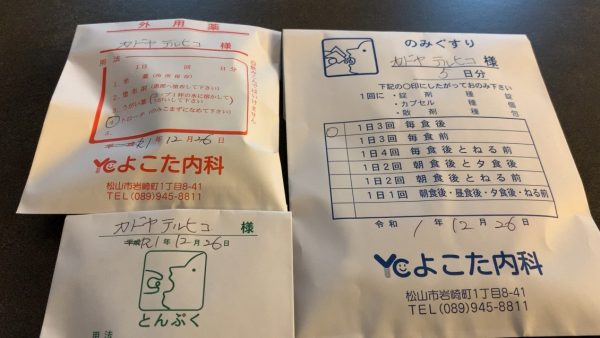 外用薬
カドヤ テルヒコ 様
用法
1日 回 日分
1.
2.
3. うがい薬 (コップ1杯の水に溶かして
うがいして下さい)
④ トローチ (のみこまずになめて下さい)
R1年12月26日
YCよこた内科
松山市岩崎町1丁目8-41
TEL(089)945-8811
カドヤ テルヒコ 様
平成R1年12月26日
とんぷく
用法
のみぐすり
カドヤ テルヒコ 様
5日分
下記の〇印にしたがってお のみ下さい
1回に ・錠剤 種 錠
・カプセル 種 個
・散剤 種 包
〇 1日3回 毎食後
1日3回 毎食前
1日4回 毎食後とねる前
1日2回 朝食後と夕食後
1日2回 朝食後とねる前
1日1回 朝食後・昼食後・夕食後・ねる前
令和1年12月26日
YCよこた内科
松山市岩崎町1丁目8-41
TEL (089) 945-8811